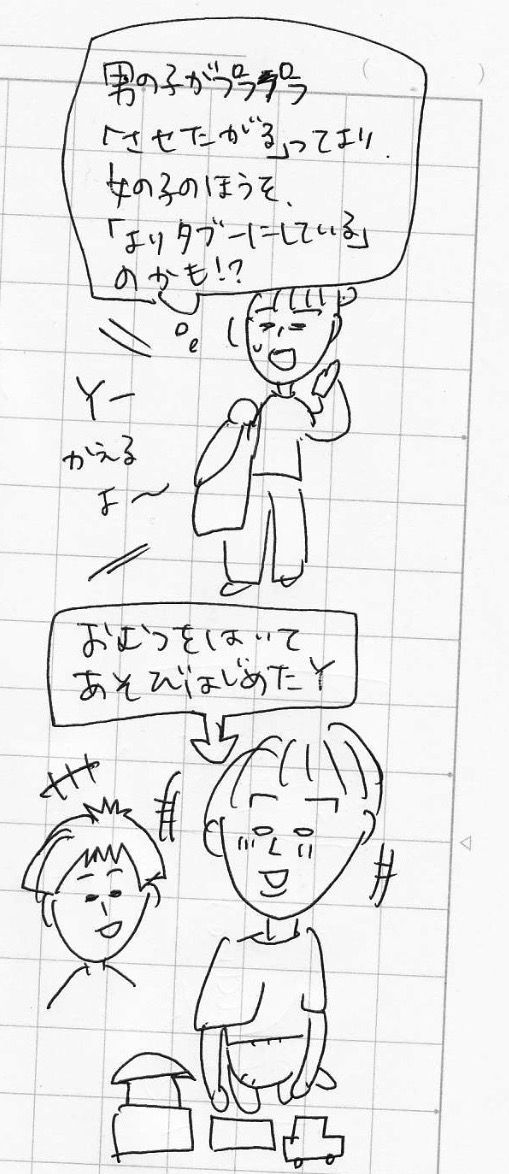 男の子がプラプラ
「させたがる」ってより、
女の子のほうを、
「よりタブーにしている」
のかも!?
Yー
かえる
よ〜
おむつをはいて
あそびはじめたY